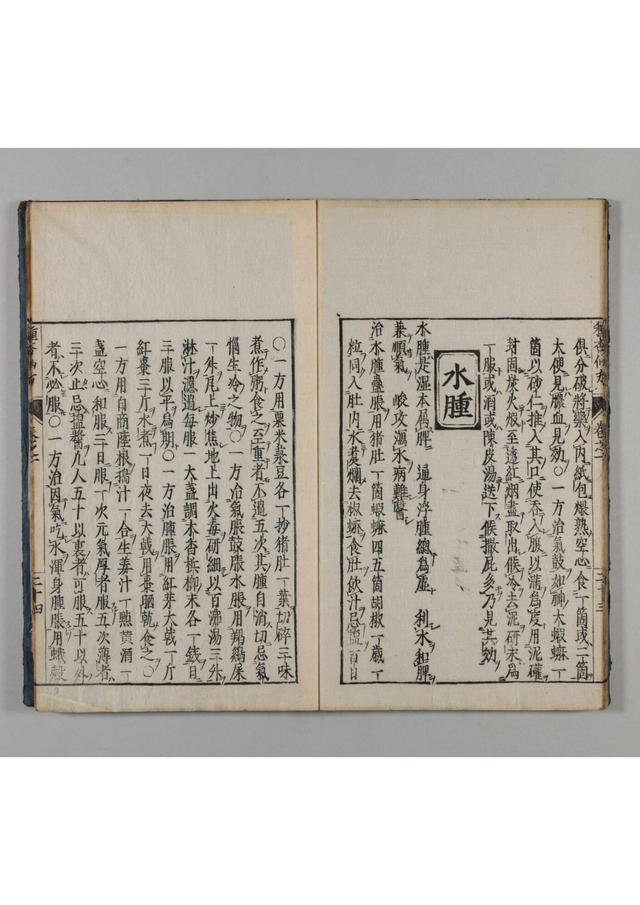 俱分破將藥入內紙包煨熟空心食一箇或二箇
大便見膿血見効〇一方治氣鼓如神大蝦蟆一
箇以砂仁推入其口使吞入服以滿為度用泥礶
封固炭火煅至透紅烟盡取出候冷去泥研末為
一服或酒或陳皮湯送下候撒屁多乃見其効
水腫
水腫是湿本属脾 遍身浮腫總為虛 利水和脾
兼順氣 峻攻瀉水病難醫
治水腫蠱脹用猪肚一箇蝦蟆四五箇胡椒一歲一
粒同入肚內水煑爛去椒蟆食肚飲汁忌塩百日
〇一方用粟米菉豆各一抄猪肚一葉切碎三味
煮作粥食之至重者不過五次其腫自消切忌氣
惱生冷之物〇一方治氣脹鼓脹水脹用鷄屎
一升瓦上炒焦地上出火毒研細以百沸湯三升
淋汁濾過每服一大盞調木香梹榔末各一錢日
三服以平為期〇一方治腫脹用紅芽大戟一斤
紅棗三斤水煮一日夜去大戟用棗晒乾食之〇
一方用自商陸根搗汁一合生姜汁一㸃黃酒一
盞空心和服三日服一次元氣厚者服五次薄者
三次止忌塩醬凢人五十以裏者可服五十以外
者不必服〇一方治因氣吃水渾身腫脹用蛾殼
卷之二
二十三
卷之二
二十四